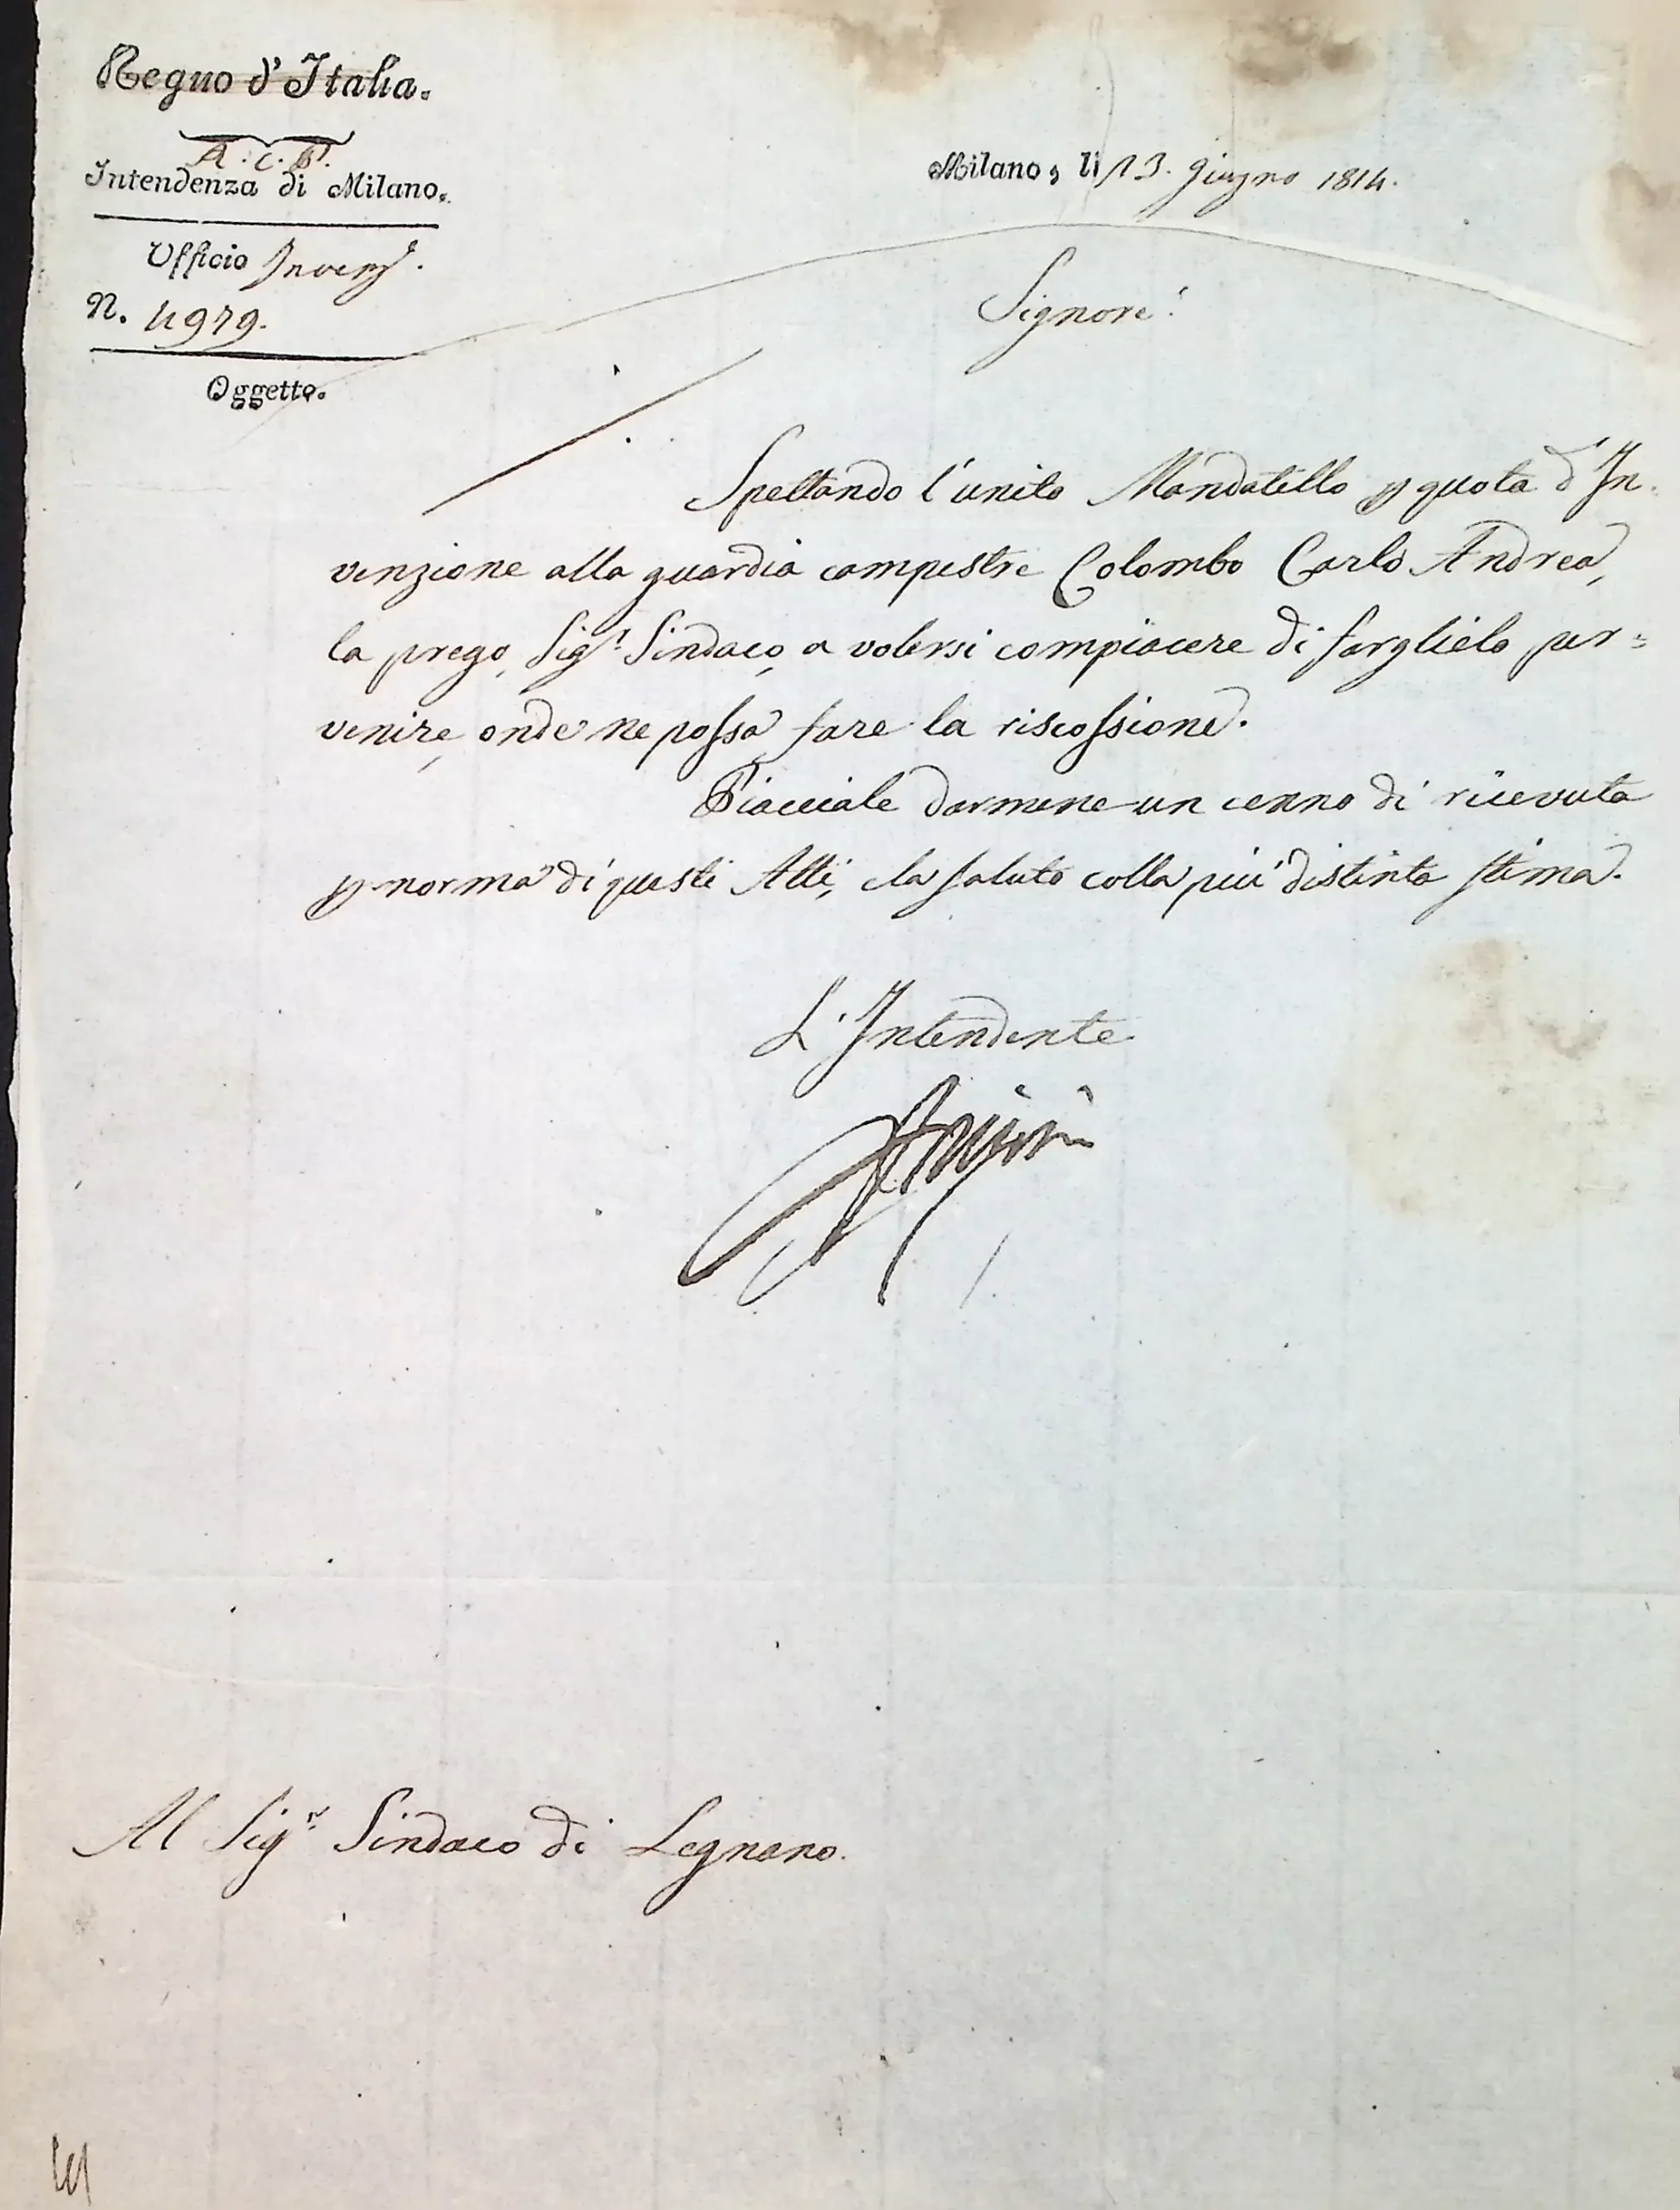 Regno d'Italia.
A. c. b.
Intendenza di Milano.
Milano, li 13. giugno 1814.
Ufficio Invenz.
N. 4979.
Oggetto.
Signore!
Spettando l'unito Mandatello p quota d'In-
venzione alla guardia campestre Colombo Carlo Andrea,
la prego, Sigr. Sindaco, a volersi compiacere di farglielo per=
venire, onde ne possa fare la riscossione.
Piacciale darmene un cenno di ricevuta
p norma di questi Atti, e la saluto colla più distinta stima.
L'Intendente
Al Sigr. Sindaco di Legnano.